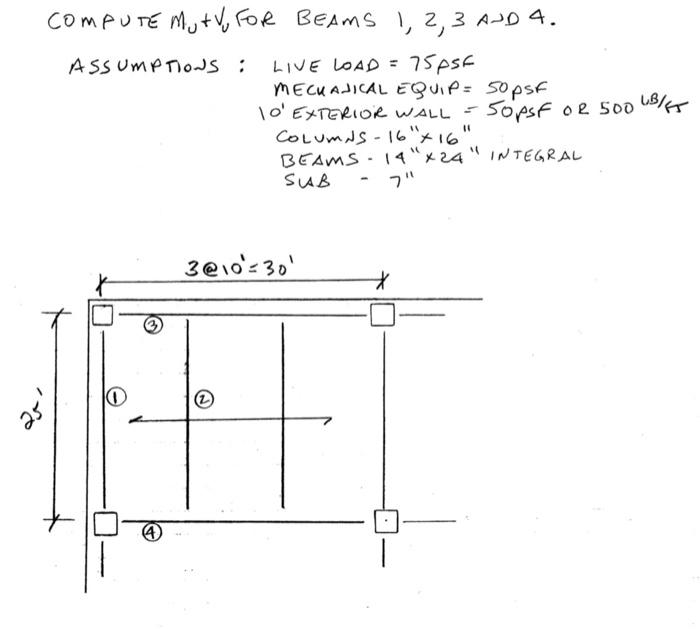 COMPUTE Mu+Vu FOR BEAMS 1, 2, 3 AND 4.
ASSUMPTIONS : LIVE LOAD = 75 PSF
MECHANICAL EQUIP = 50 PSF
10' EXTERIOR WALL = 50 PSF OR 500 LB/FT
COLUMNS - 16" x 16"
BEAMS - 14" x 24" INTEGRAL
SLAB - 7"
3@10'=30'
3
1
2
25'
4